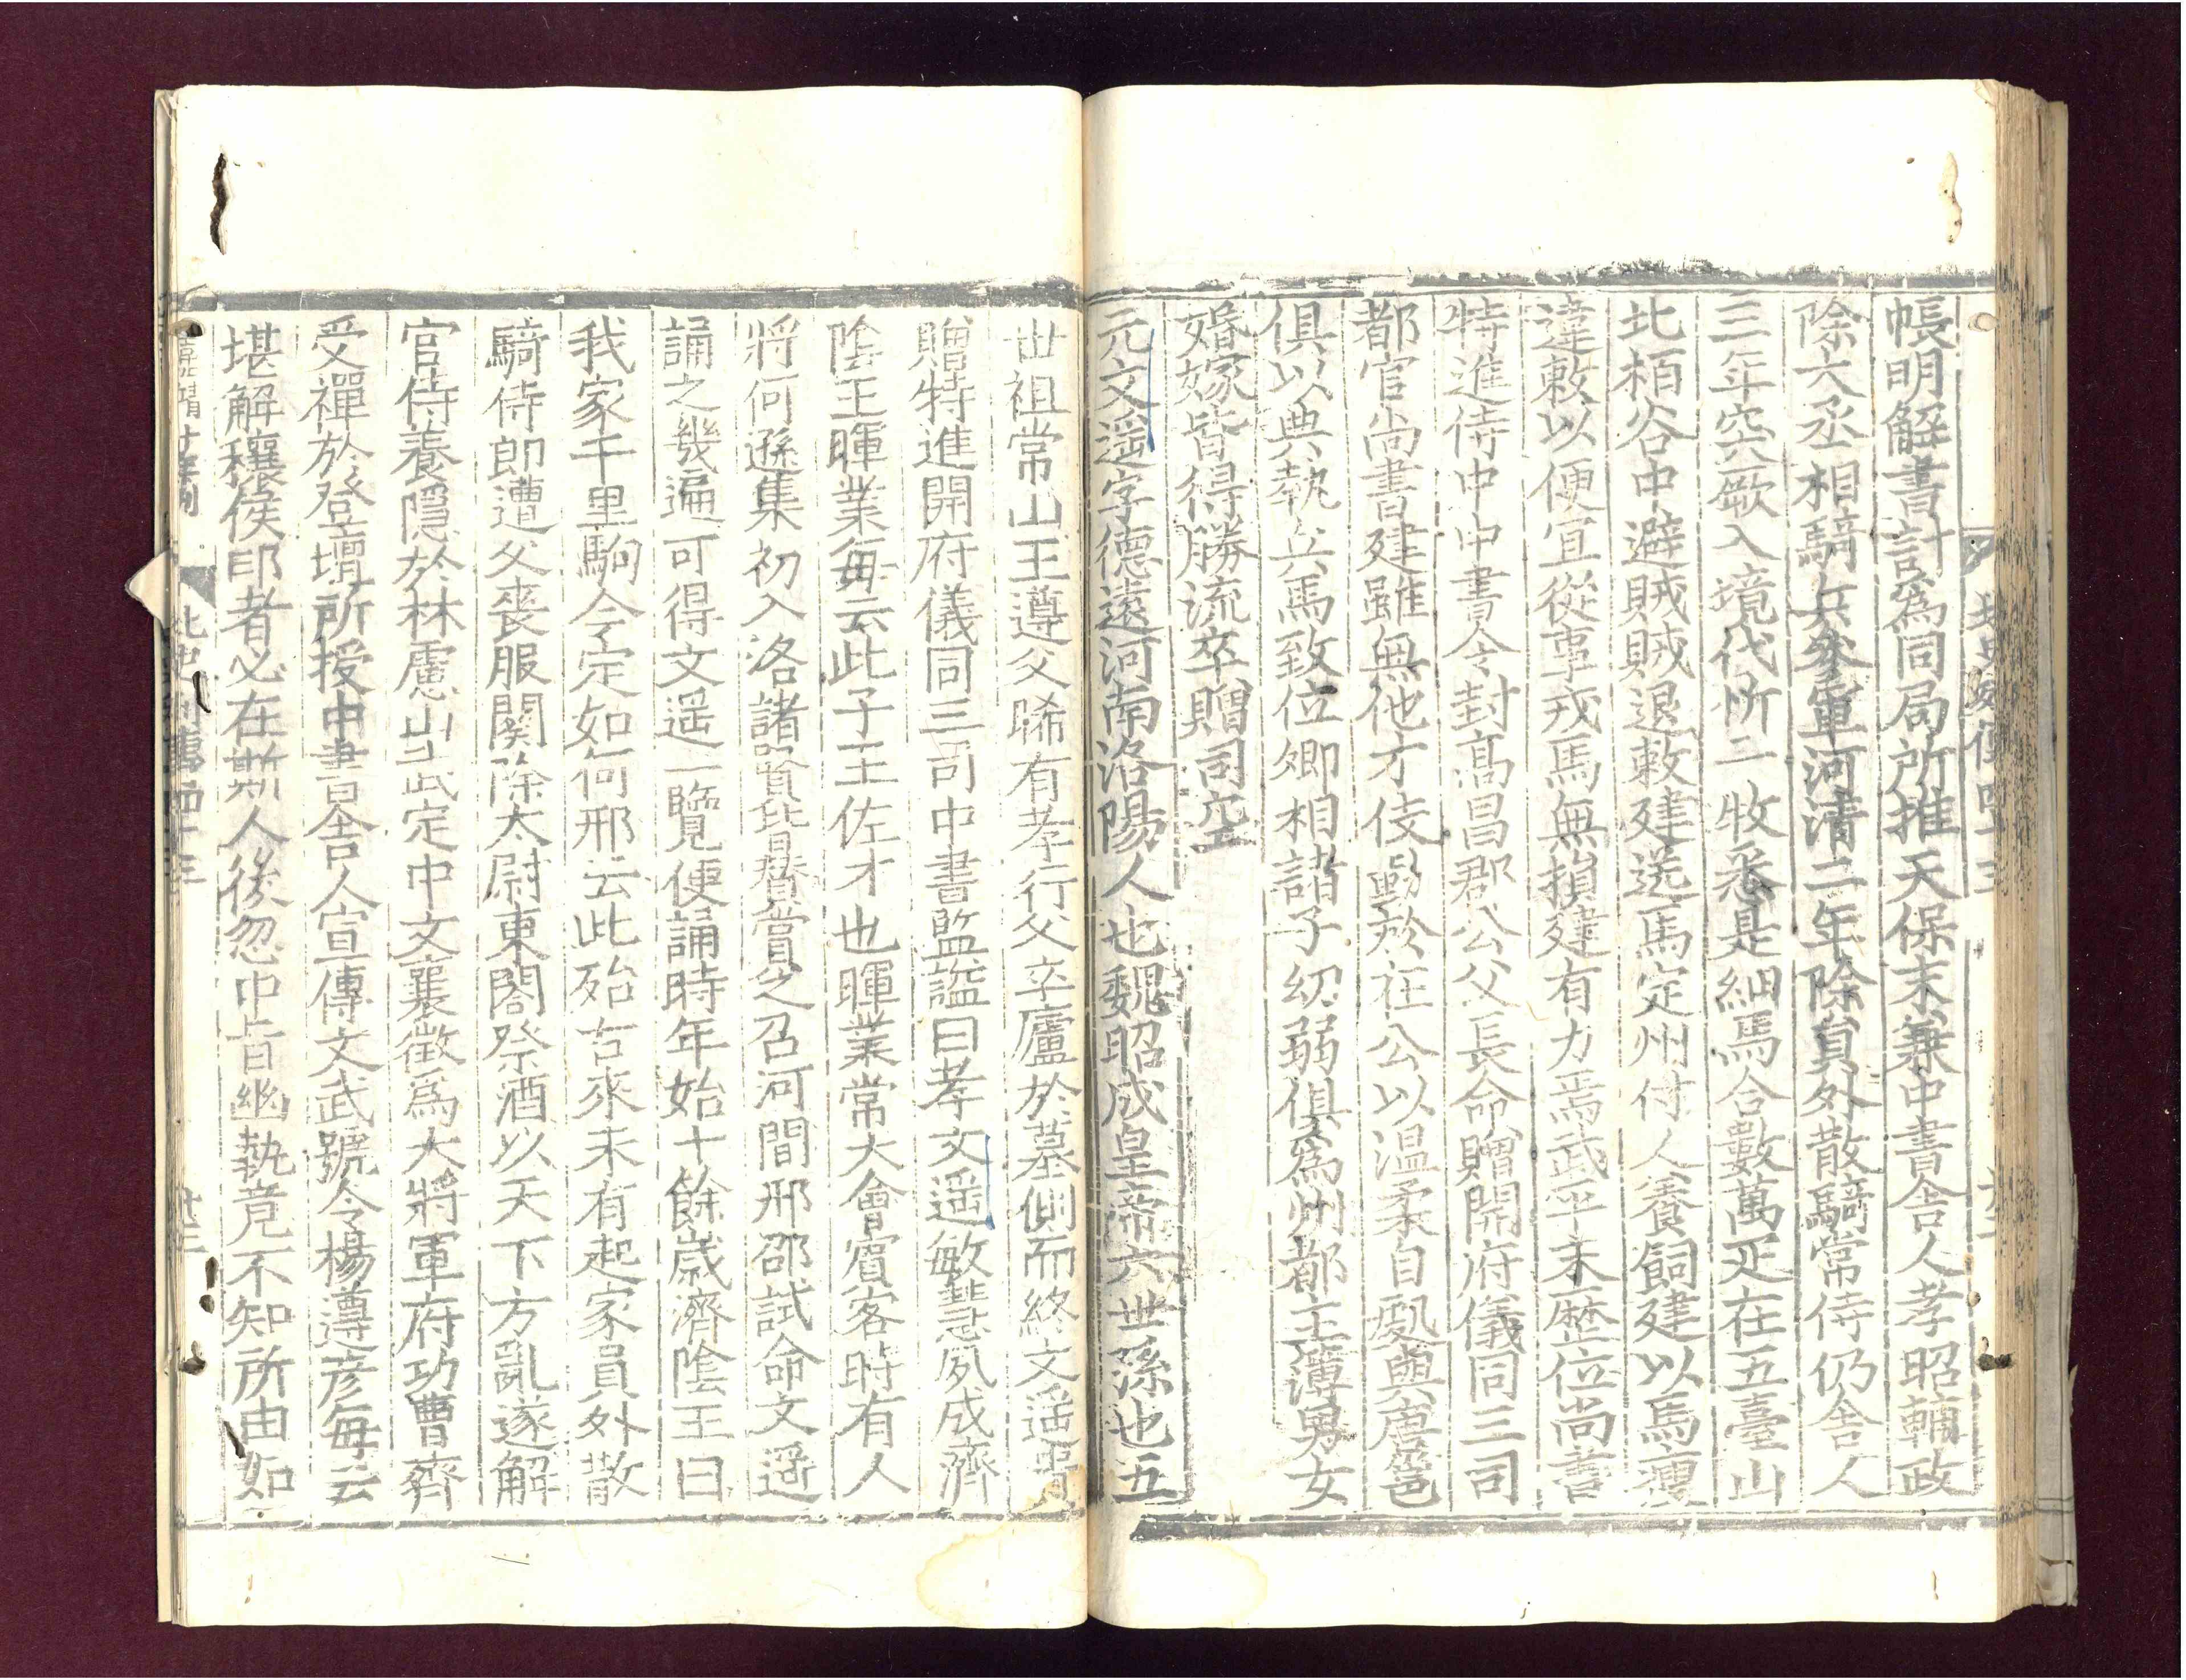 帳明解書計爲同局所推天保末兼中書舍人孝昭輔政
除大丞相騎兵參軍河清二年除員外散騎常侍仍舍人
三年突厥入境代忻二牧悉是細馬合數萬疋在五臺山
北栢谷中避賊賊退敕建送馬定州付人養飼建以馬瘦
違敕以便宜從事戎馬無損建有力焉武平末歷位尚書
特進侍中中書令封髙昌郡公父長命贈開府儀同三司
都官尚書建雖無他才伎勤於在公以温柔自處與唐邕
俱以典執兵馬致位卿相諸子幼弱俱爲州都主簿男女
婚嫁皆得勝流卒贈司空
元文遥字德遠河南洛陽人也魏昭成皇帝六世孫也五
世祖常山王遵父晞有孝行父卒廬於墓側而終文遥貴
贈特進開府儀同三司中書監謚曰孝文遥敏慧夙成濟
陰王暉業毎云此子王佐才也暉業常大會賓客時有人
將何遜集初入洛諸賢皆賛賞之召河間邢邵試命文遥
誦之幾遍可得文遥一覽便誦時年始十餘歲濟陰王曰
我家千里駒今定如何邢云此殆古來未有起家員外散
騎侍郎遭父喪服闋除太尉東閤祭酒以天下方亂遂解
官侍養隱於林慮山武定中文襄徵爲大將軍府功曹齊
受禪於登壇所授中書舍人宣傳文武號令楊遵彦毎云
堪解穰侯印者必在斯人後忽中旨幽執竟不知所由如